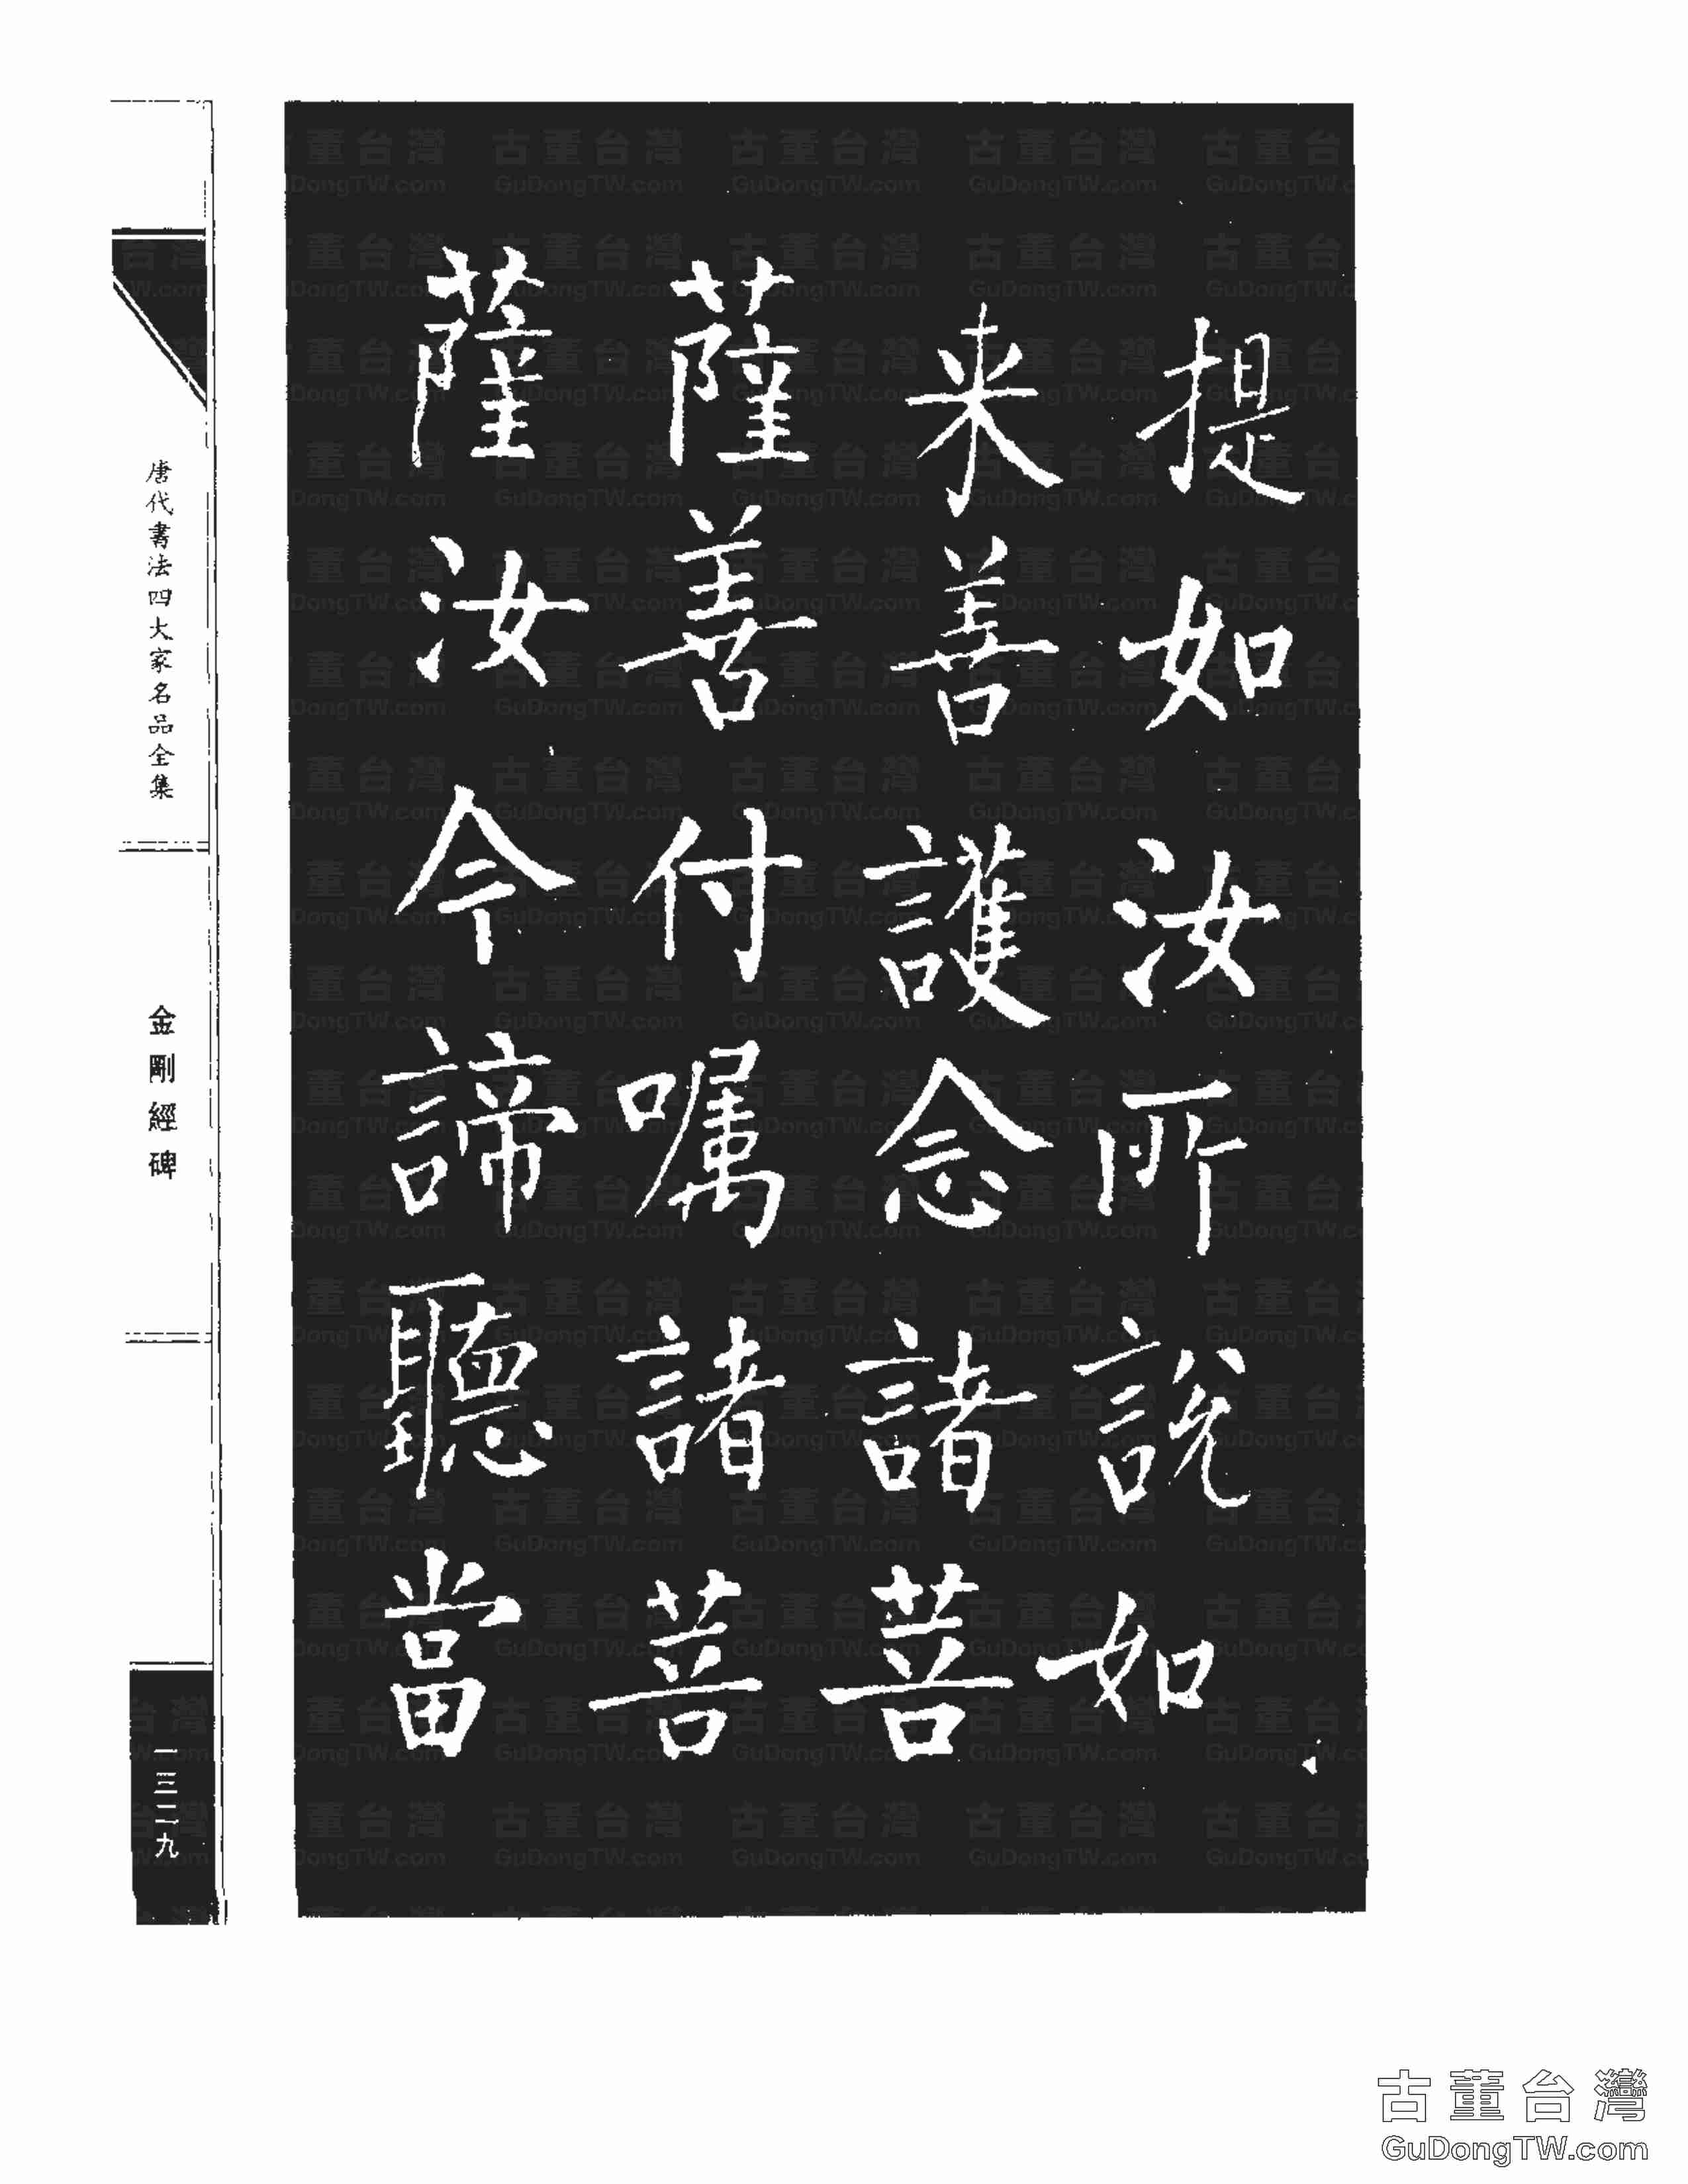 提如汝所說如
来善護念諸菩
薩善付嘱諸菩
薩汝今諦聽當
唐代書法四大家名品全集
金剛經碑
一三二九
古董台灣
GuDongTW.com